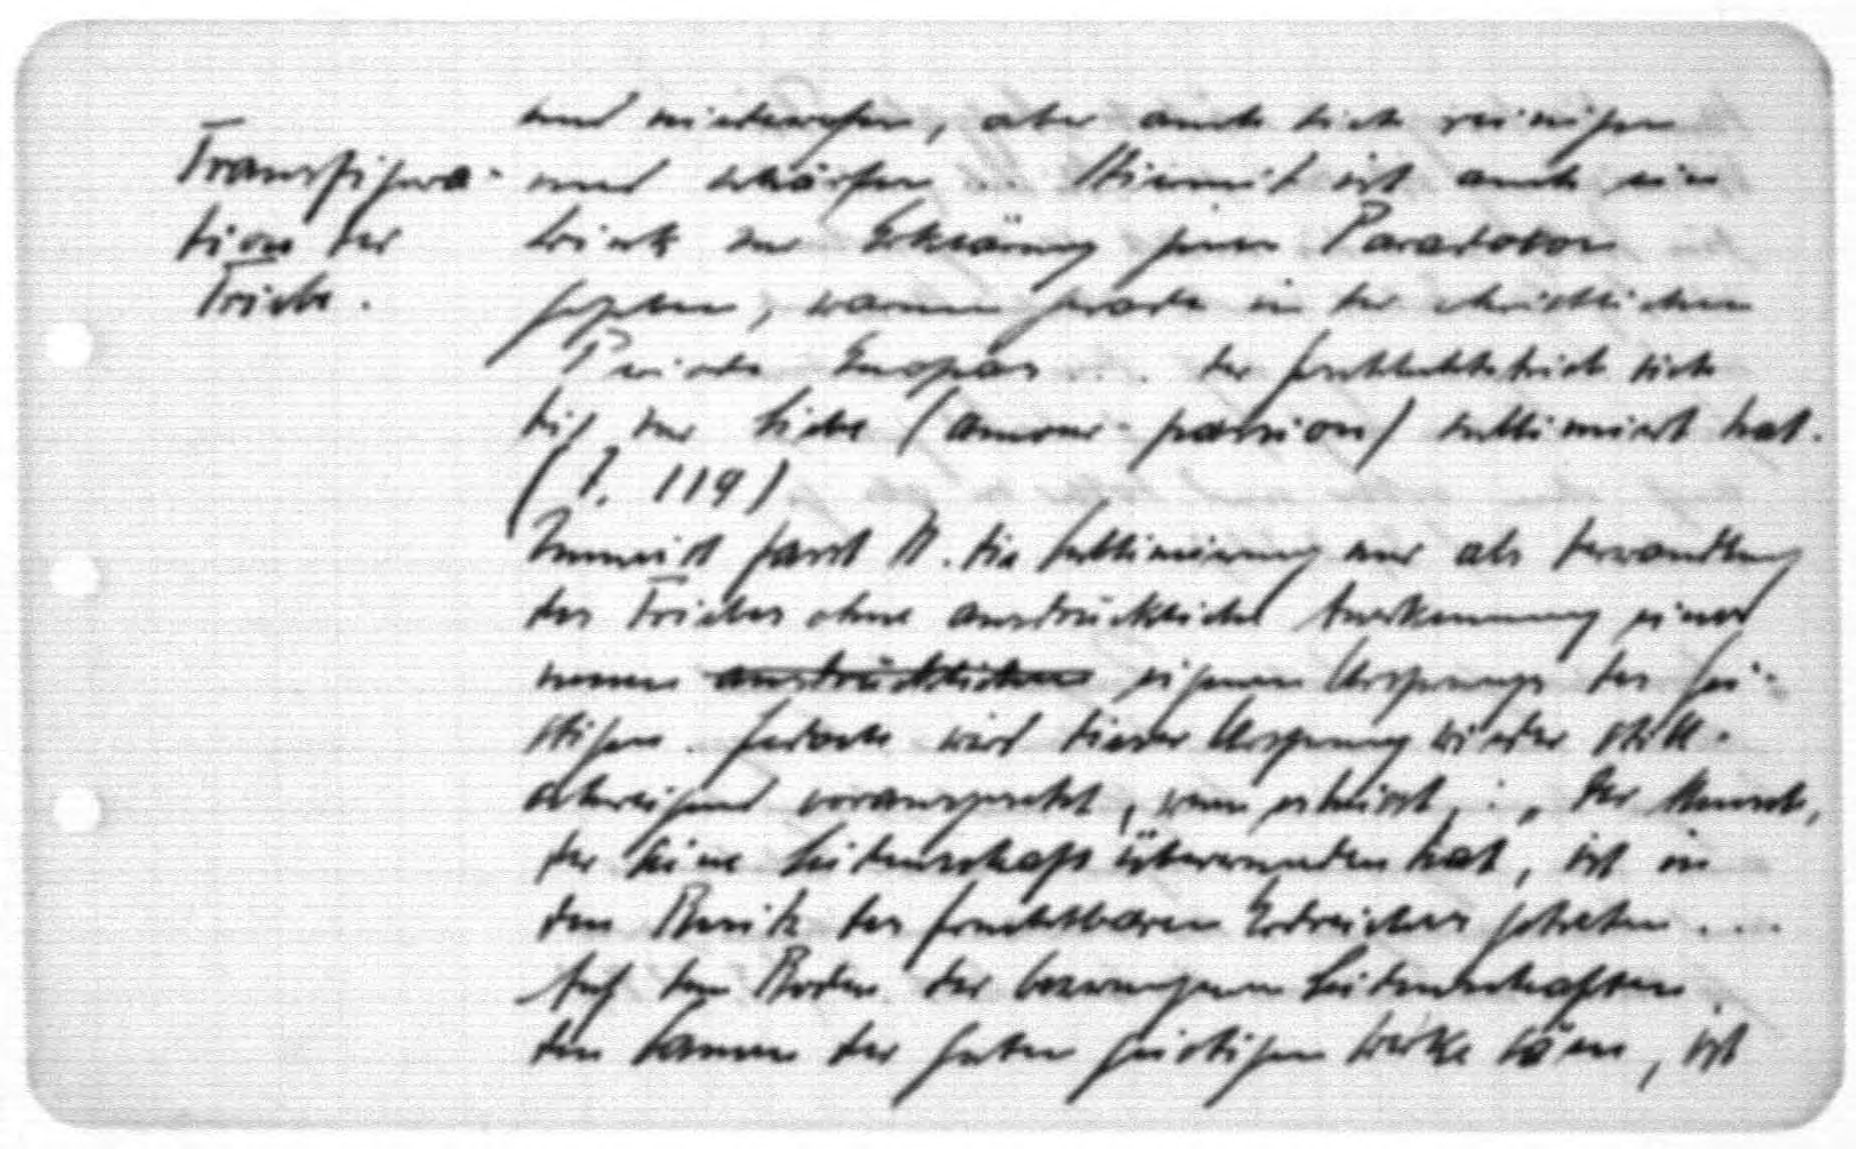 Transfigura-
tion der
Triebe.
und niederwerfen, aber auch sich reinigen
und schärfen ... Hiermit ist auch ein
Wink zur Erklärung jenes Paradoxon
gegeben, warum gerade in der christlichen
Periode Europas ... der Geschlechtstrieb sich
bis zur Liebe (amour-passion) sublimiert hat.
(7. 119)
Zumeist fasst N. die Sublimierung nur als Verwandlung
des Triebes ohne ausdrückliche Anerkennung eines
neuen ausdrücklichen eigenen Ursprungs des Gei-
stigen. Jedoch wird dieser Ursprung wieder still-
schweigend vorausgesetzt, wenn es heisst: „Der Mensch,
der seine Leidenschaft überwunden hat, ist in
den Besitz des fruchtbaren Erdreiches getreten ...
Auf dem Boden der bezwungenen Leidenschaften
den Samen der guten geistigen Werke säen, ist